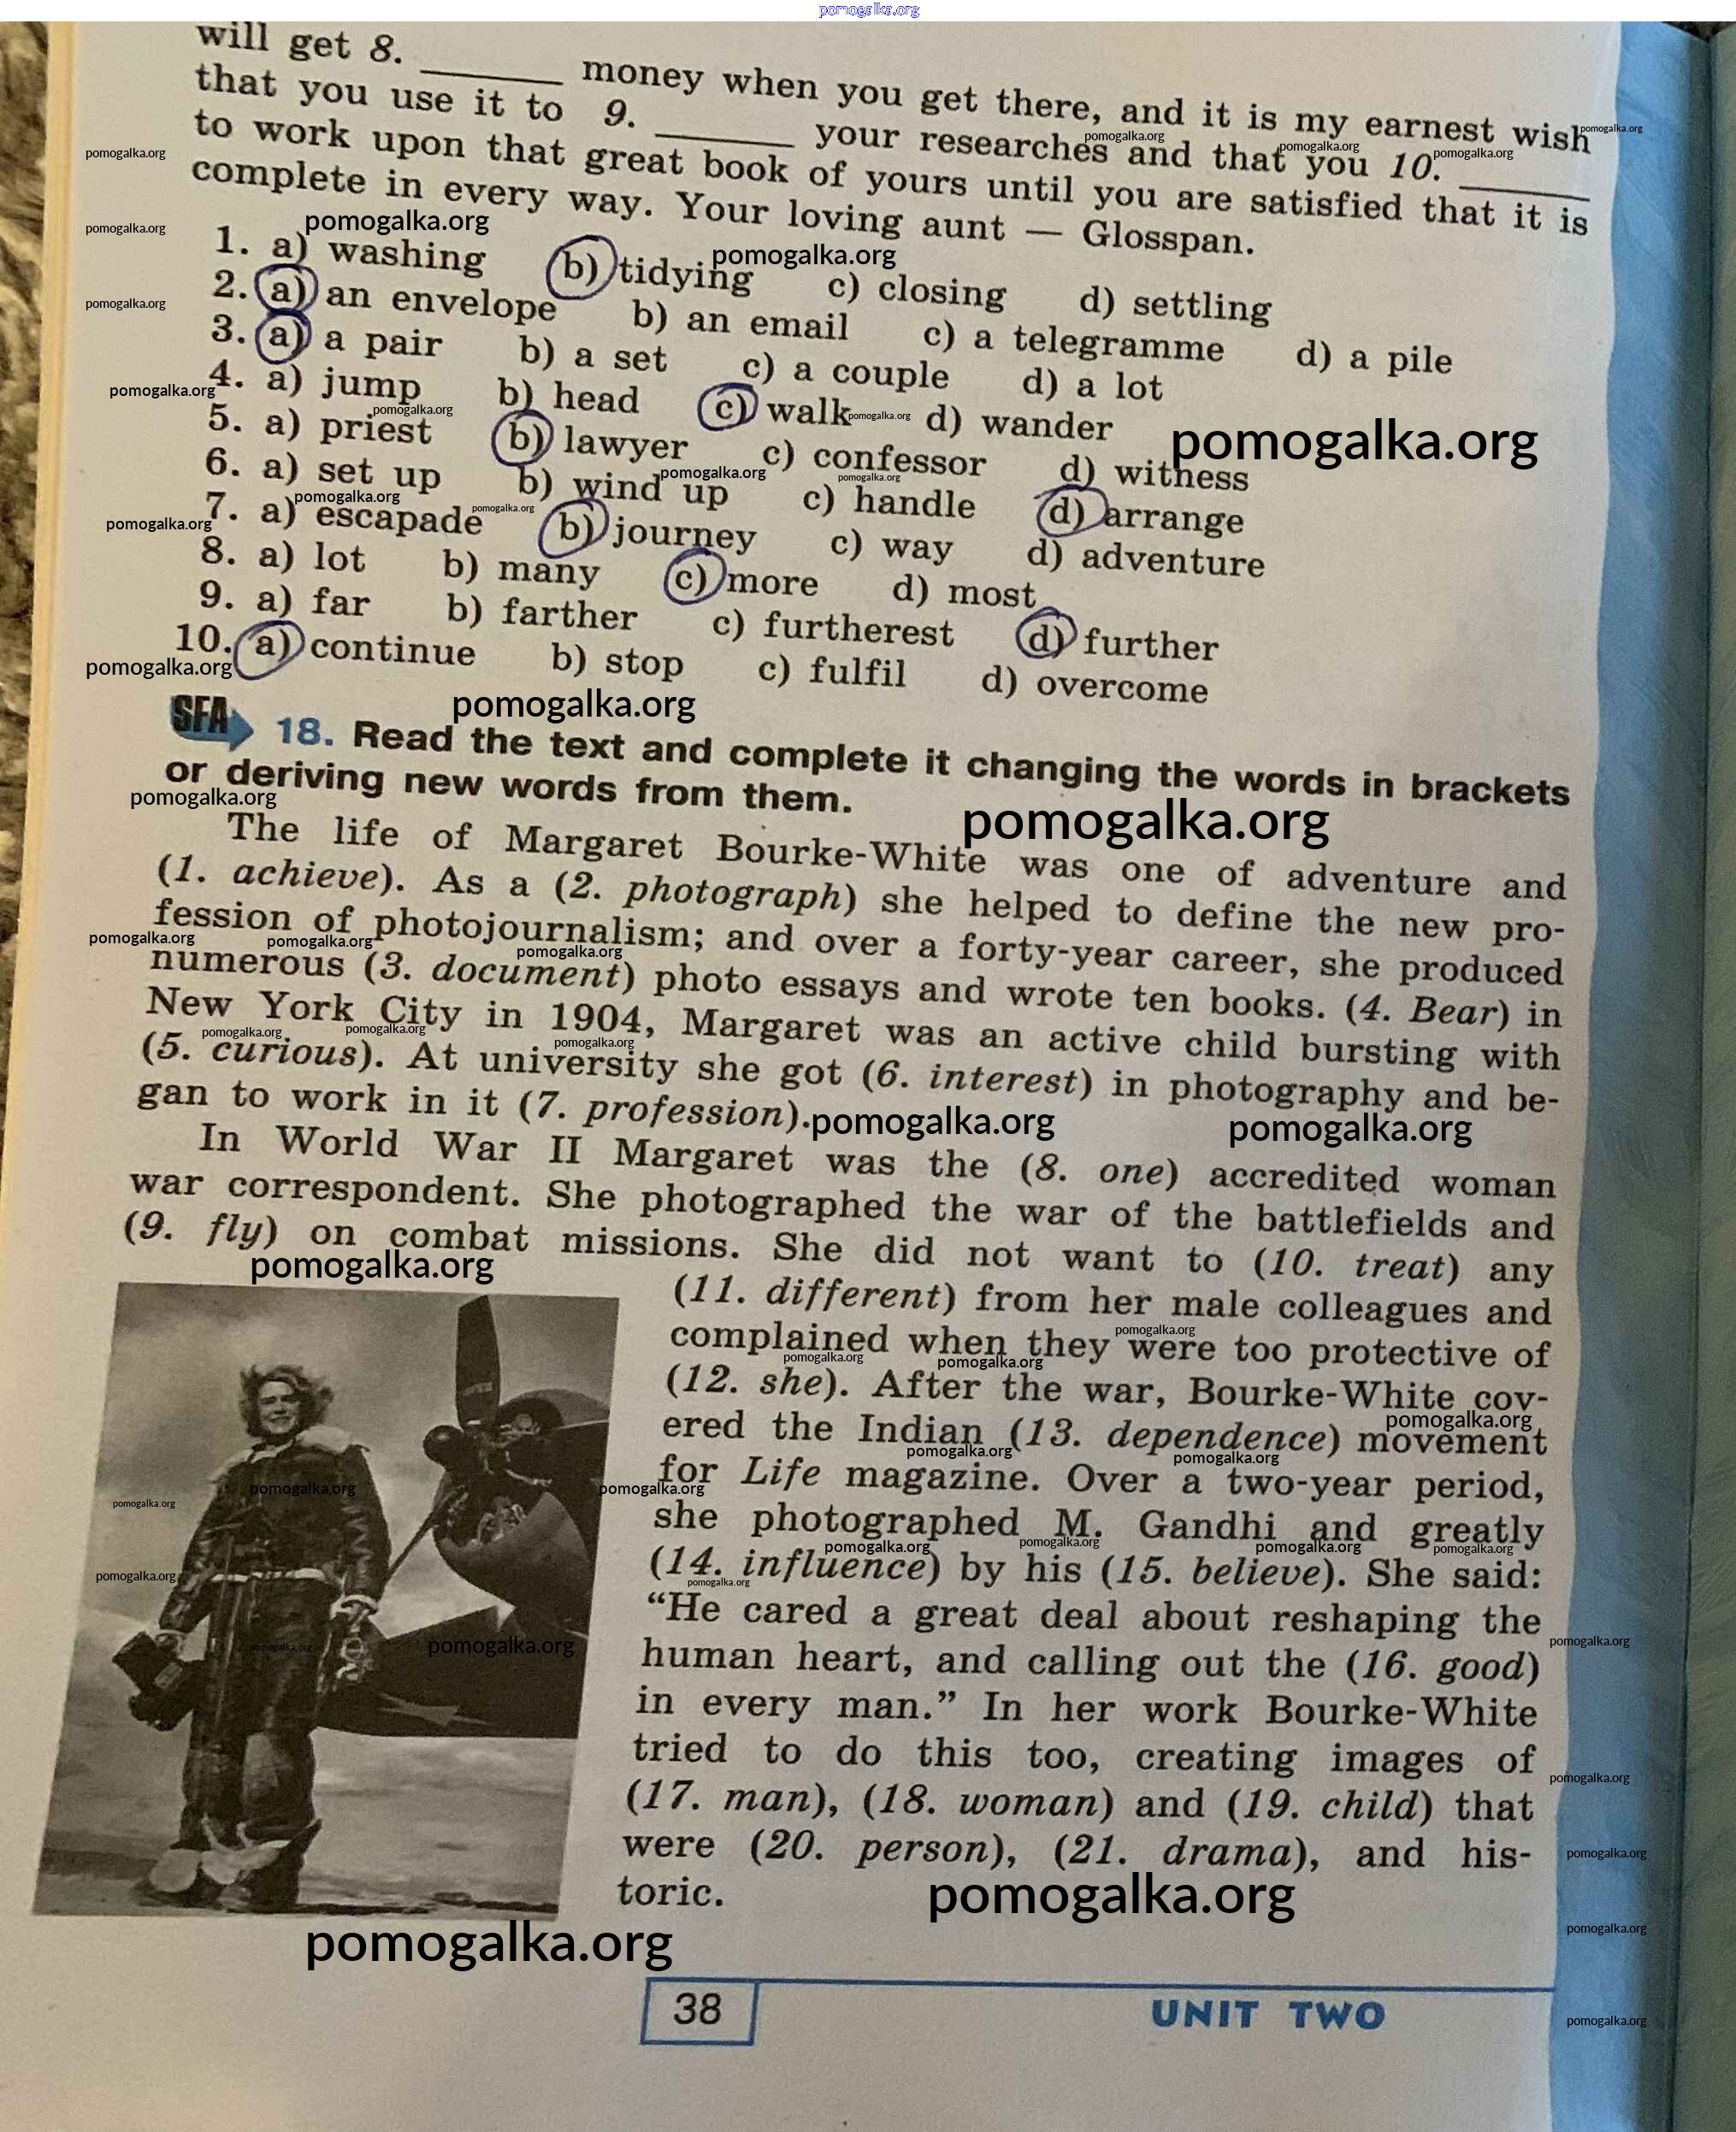 pomogalka.org
will get 8. ______ money when you get there, and it is my earnest wish
that you use it to 9. ______ your researches and that you 10. ______
to work upon that great book of yours until you are satisfied that it is
complete in every way. Your loving aunt — Glosspan.
1. a) washing b) tidying c) closing d) settling
2. a) an envelope b) an email c) a telegramme d) a pile
3. a) a pair b) a set c) a couple d) a lot
4. a) jump b) head c) walk d) wander
5. a) priest b) lawyer c) confessor d) witness
6. a) set up b) wind up c) handle d) arrange
7. a) escapade b) journey c) way d) adventure
8. a) lot b) many c) more d) most
9. a) far b) farther c) furtherest d) further
10. a) continue b) stop c) fulfil d) overcome
SFA 18. Read the text and complete it changing the words in brackets
or deriving new words from them.
The life of Margaret Bourke-White was one of adventure and
(1. achieve). As a (2. photograph) she helped to define the new pro-
fession of photojournalism; and over a forty-year career, she produced
numerous (3. document) photo essays and wrote ten books. (4. Bear) in
New York City in 1904, Margaret was an active child bursting with
(5. curious). At university she got (6. interest) in photography and be-
gan to work in it (7. profession).
In World War II Margaret was the (8. one) accredited woman
war correspondent. She photographed the war of the battlefields and
(9. fly) on combat missions. She did not want to (10. treat) any
(11. different) from her male colleagues and
complained when they were too protective of
(12. she). After the war, Bourke-White cov-
ered the Indian (13. dependence) movement
for Life magazine. Over a two-year period,
she photographed M. Gandhi and greatly
(14. influence) by his (15. believe). She said:
“He cared a great deal about reshaping the
human heart, and calling out the (16. good)
in every man.” In her work Bourke-White
tried to do this too, creating images of
(17. man), (18. woman) and (19. child) that
were (20. person), (21. drama), and his-
toric.
pomogalka.org
38
UNIT TWO